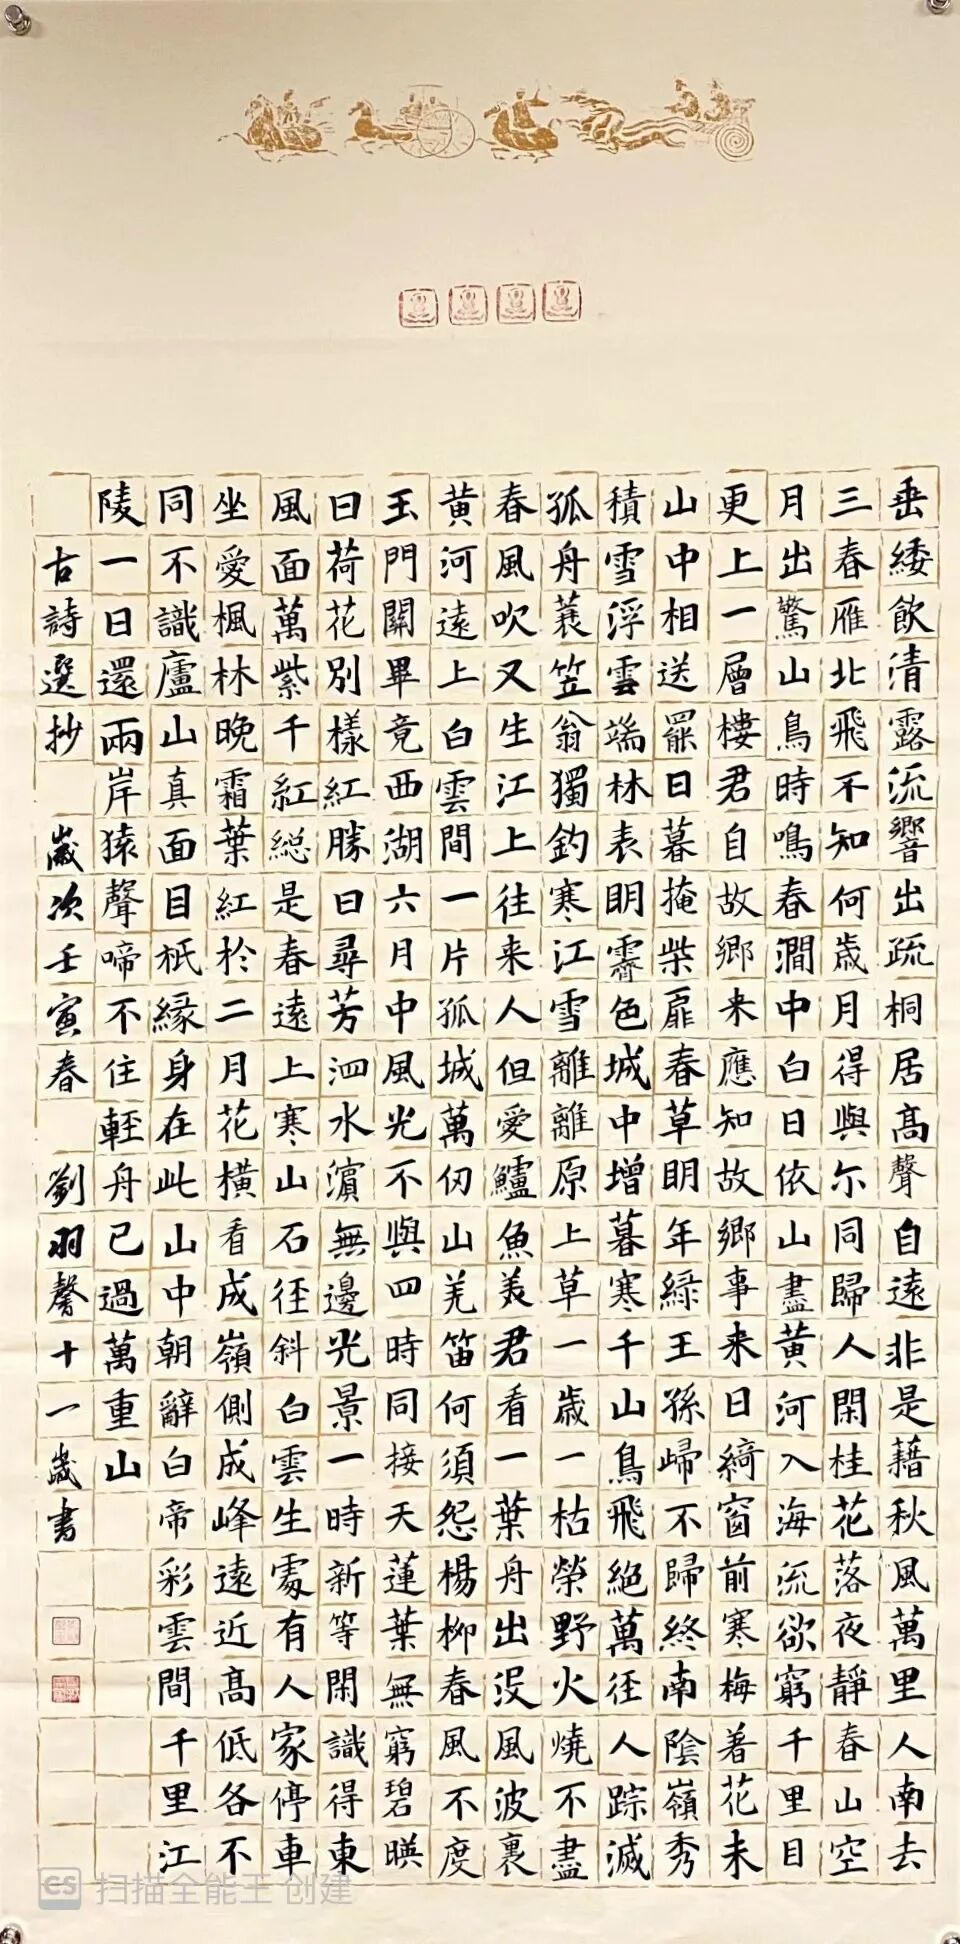 垂緌飲清露流響出疏桐居高聲自遠非是藉秋風萬里人南去
三春雁北飛不知何歳月得與尓同歸人閑桂花落夜靜春山空
月出驚山鳥時鳴春澗中白日依山盡黃河入海流欲窮千里目
更上一層樓君自故鄉来應知故鄉事来日綺窗前寒梅著花未
山中相送罷日暮掩柴扉春草明年綠王孫歸不歸終南陰嶺秀
積雪浮雲端林表明霽色城中增暮寒千山鳥飛絕萬径人踪滅
孤舟蓑笠翁獨釣寒江雪離離原上草一歳一枯榮野火燒不盡
春風吹又生江上往来人但愛鱸魚美君看一葉舟出没風波裏
黃河遠上白雲間一片孤城萬仞山羌笛何須怨楊柳春風不度
玉門關畢竟西湖六月中風光不與四時同接天蓮葉無窮碧暎
日荷花別樣紅勝日尋芳泗水濵無邊光景一時新等閑識得東
風面萬紫千紅総是春遠上寒山石径斜白雲生處有人家停車
坐愛楓林晚霜葉紅於二月花橫看成嶺側成峰遠近高低各不
同不識廬山真面目衹緣身在此山中朝辭白帝彩雲間千里江
陵一日還兩岸猿聲啼不住輕舟已過萬重山
古詩選抄 歲次壬寅春 劉羽馨十一歲書
CS 扫描全能王 创建